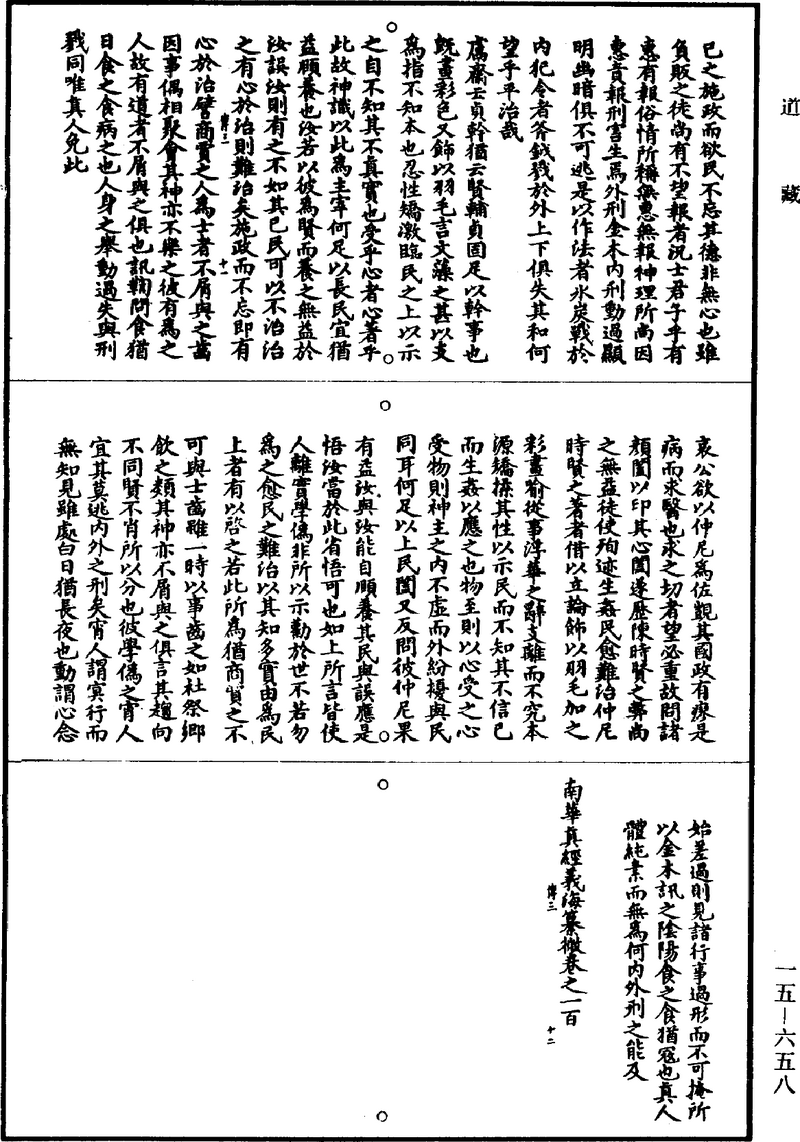 道藏
已之施政而欲民不忘其德非無心也雖
負販之徒尚有不望報者況士君子乎有
惠有報俗情所稱無惠無報神理所尚因
惠責報刑害生焉外刑金木內刑動過顯
明幽暗俱不可逃是以作法者氷炭戰於
內犯令者斧鉞戮於外上下俱失其和何
望乎平治哉
鬳齋云貞幹猶云賢輔貞固足以幹事也
既畫彩色又飾以羽毛言文藻之甚以支
為指不知本也忍性矯激臨民之上以示
之自不知其不真實也受乎心者心著乎
此故神識以此為主宰何足以長民宜猶
益頤養也汝若以彼為賢而養之無益於
汝誤汝則有之不如其已民可以不治治
之有心於治則難治矣施政而不忘即有
心於治譬商賈之人為士者不屑與之齒
因事偶相聚會其神亦不樂之彼有為之
人故有道者不屑與之俱也訊鞫問食猶
日食之食病之也人身之舉動過失與刑
戮同唯真人免此
十一
哀公欲以仲尼為佐覬其國政有瘳是
病而求醫也求之切者望必重故問諸
顏闔以印其心闔遂歷陳時賢之弊尚
之無益徒使殉迹生姦民愈難治仲尼
時賢之著者借以立論飾以羽毛加之
彩畫喻從事浮華之辭支離而不究本
源矯揉其性以示民而不知其不信已
而生姦以應之也物至則以心受之心
受物則神主之內不虛而外紛擾與民
同耳何足以上民闔又反問彼仲尼果
有益汝與汝能自頤養其民與誤應是
悟汝當於此省悟可也如上所言皆使
人離實學偽非所以示勸於世不若勿
為之愈民之難治以其知多實由為民
上者有以啓之若此所為猶商賈之不
可與士齒雖一時以事齒之如社祭鄉
飲之類其神亦不屑與之俱言其趨向
不同賢不肖所以分也彼學偽之宵人
宜其莫逃內外之刑矣宵人謂冥行而
無知見雖處白日猶長夜也動謂心念
始差過則見諸行事過形而不可掩所
以金木訊之陰陽食之食猶寇也真人
體純素而無為何內外刑之能及
南華真經義海纂微卷之一百
傳三
十二
一五－六五八